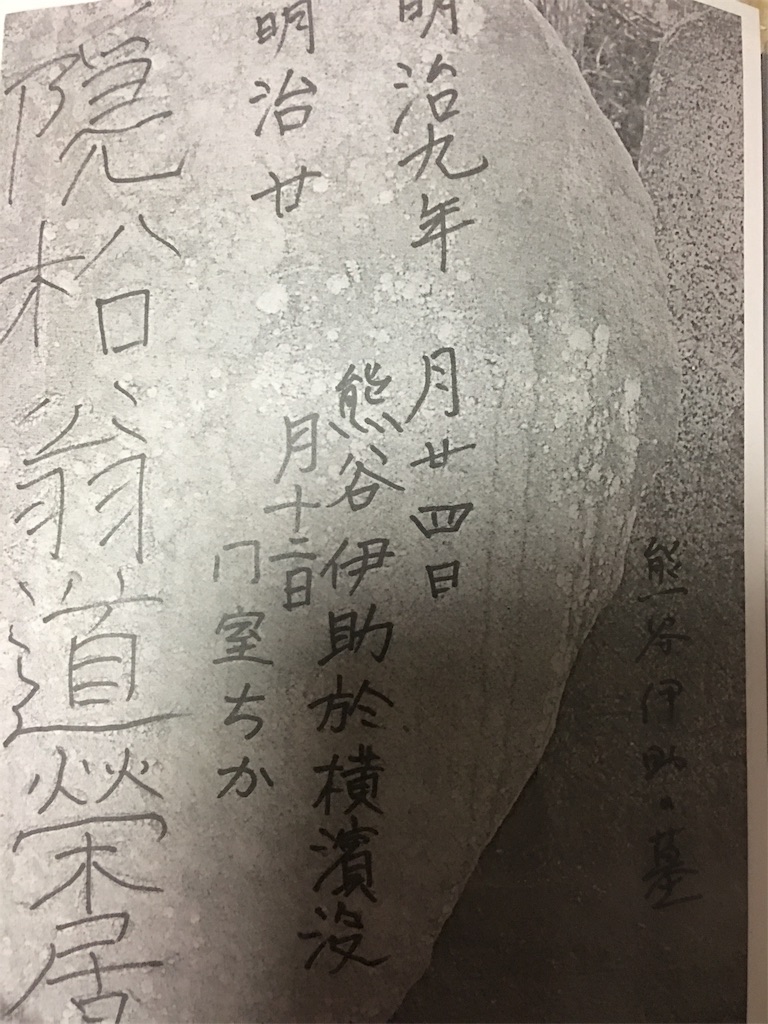 熊谷伊助の墓
明治九年 月廿四日
熊谷伊助於横濱没
明治廿 月十二日
同室ちか
隠松翁道榮居